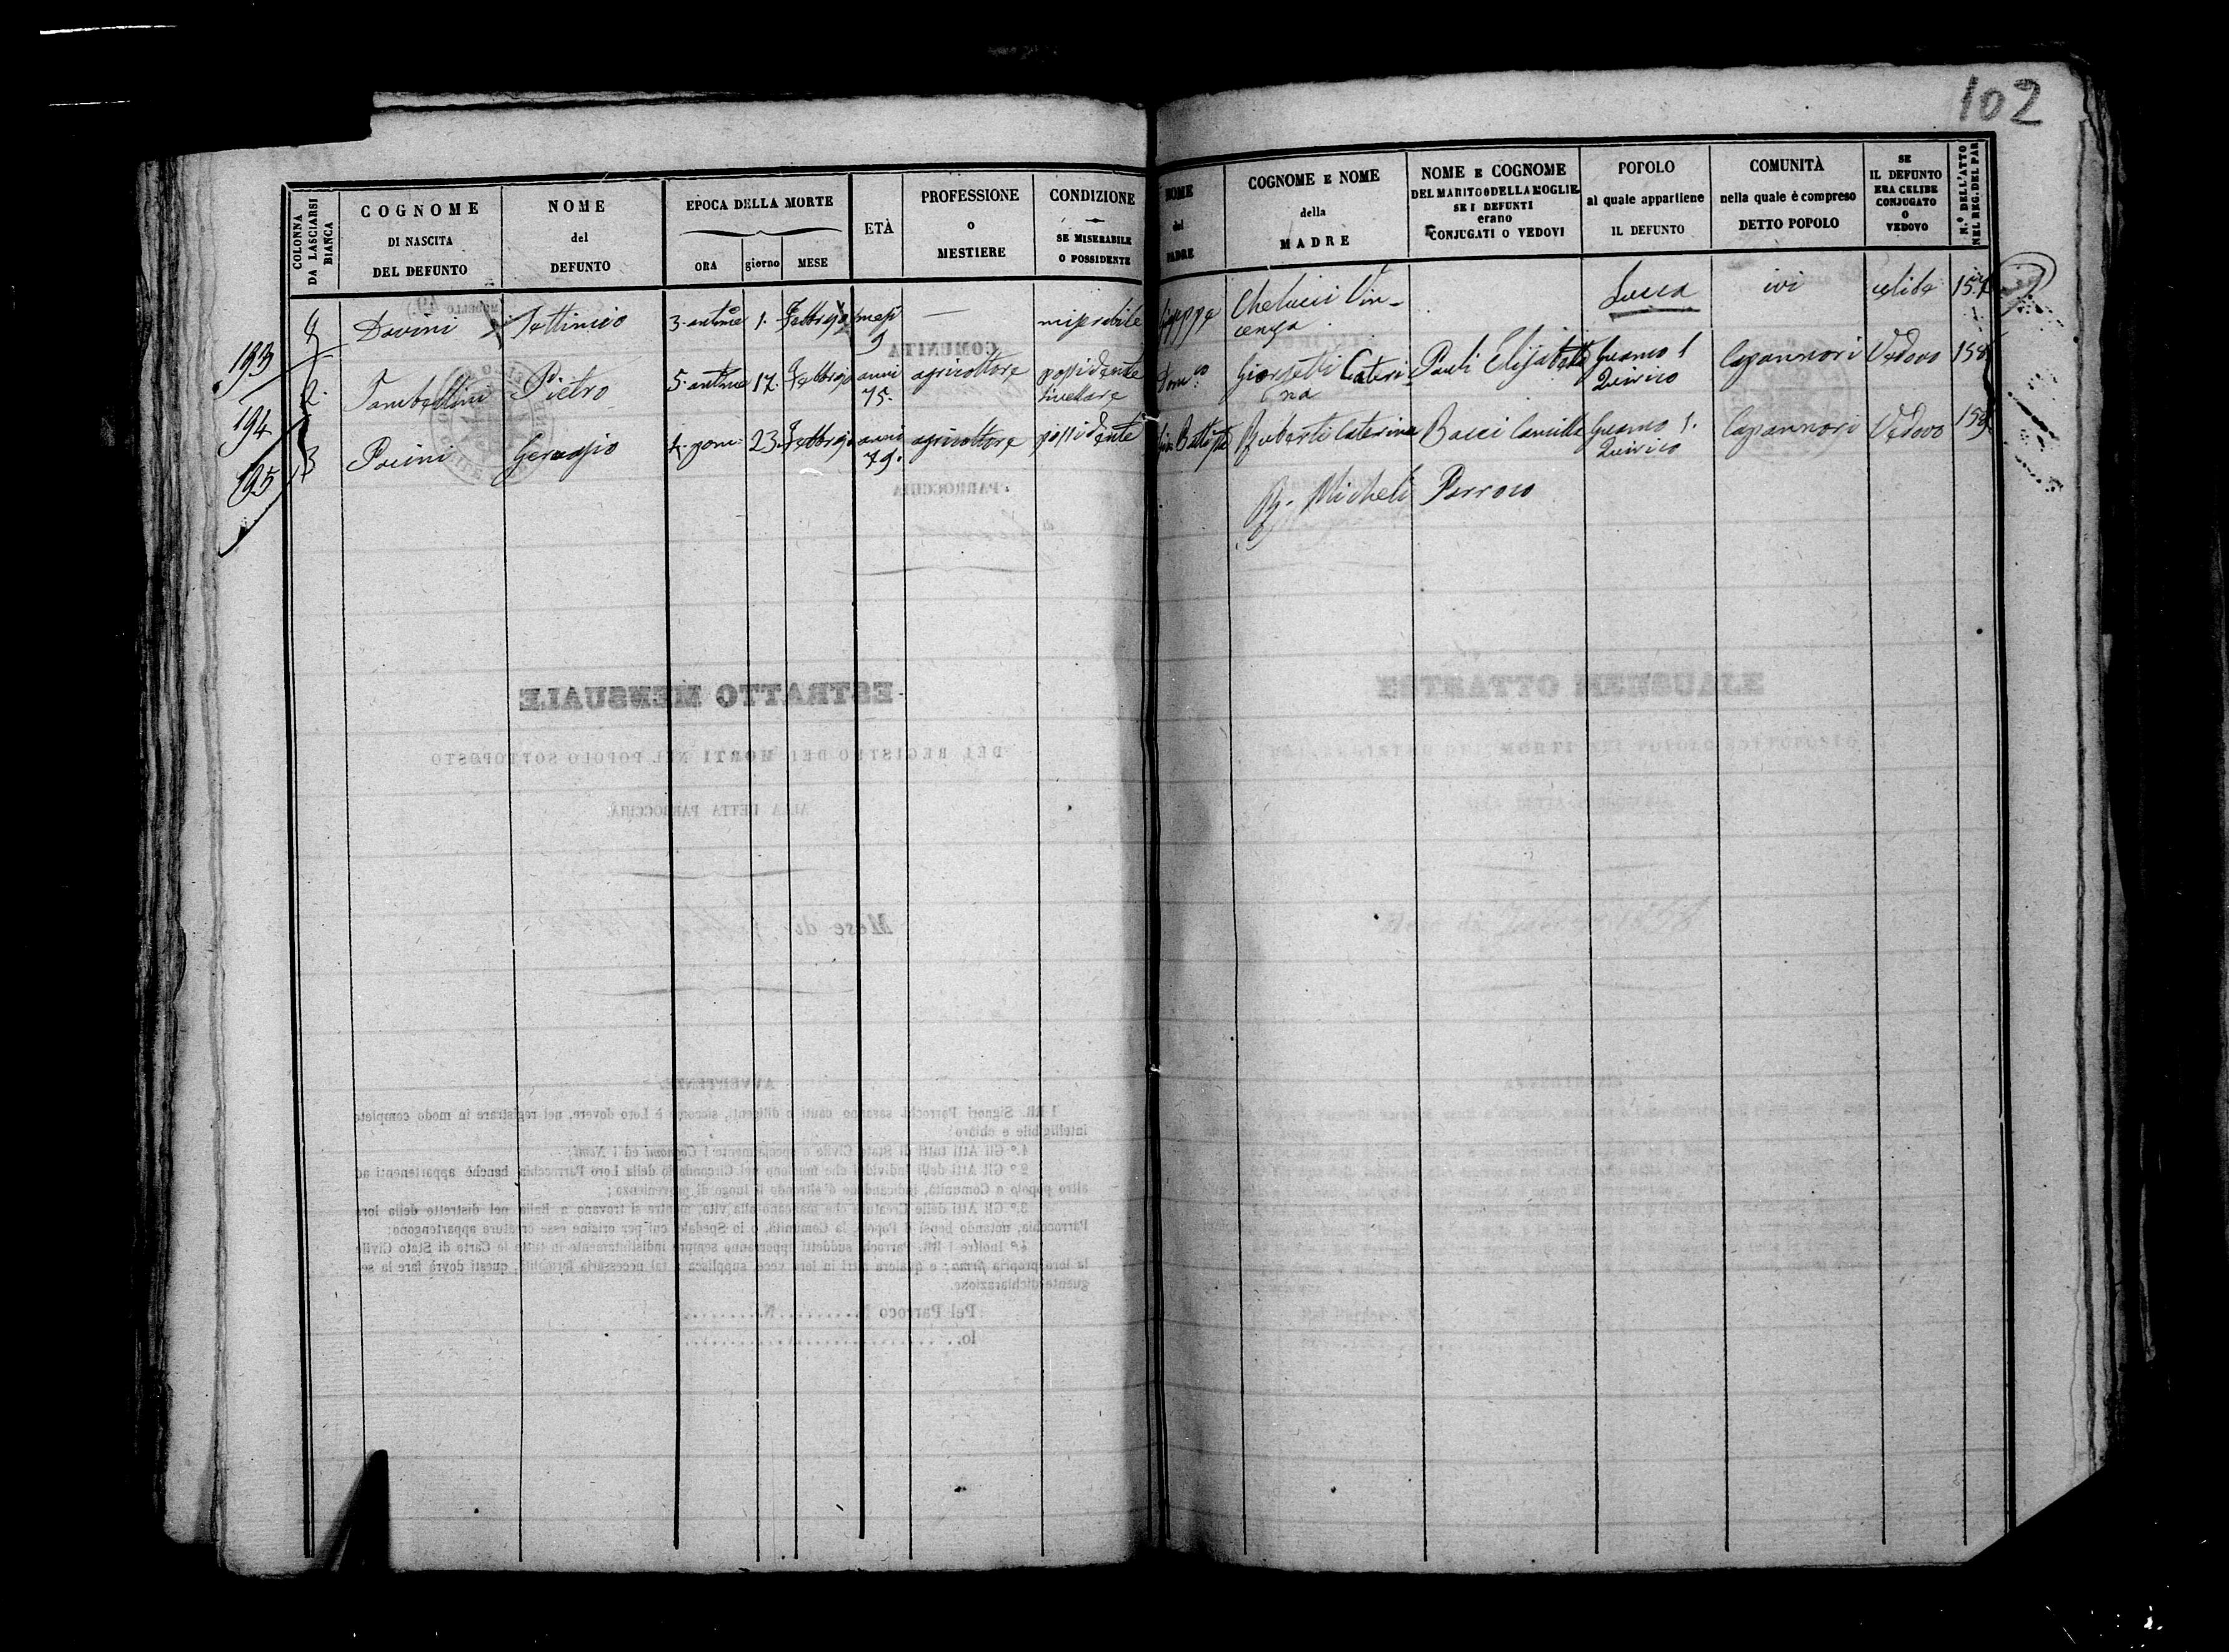 102
COLONNA DA LASCIARSI BIANCA
COGNOME
DI NASCITA
DEL DEFUNTO
NOME
del
DEFUNTO
EPOCA DELLA MORTE
ORA giorno MESE
ETÀ
PROFESSIONE
o
MESTIERE
CONDIZIONE
SE MISERABILE
O POSSIDENTE
NOME
del
PADRE
COGNOME E NOME
della
MADRE
NOME E COGNOME
DEL MARITO O DELLA MOGLIE
SE I DEFUNTI
erano
CONJUGATI O VEDOVI
POPOLO
al quale appartiene
IL DEFUNTO
COMUNITÀ
nella quale è compreso
DETTO POPOLO
SE
IL DEFUNTO
ERA CELIBE
CONJUGATO
O
VEDOVO
N.º DELL'ATTO
NEL REG. DEL PAR.
193 Davini 3. antme 1. Febbrajo mesi 9 — miserabile Giuseppe Chelucci Vin-
cenza Lucca ivi celibe 157
194 2. Tambellini Pietro 5. antme 17. Febbrajo anni 75. agricoltore possidente
livellare Domco Giorgetti Cateri-
na Paoli Elisabetta Guamo S.
Quirico Capannori Vedovo 158
195 3 Pacini Gervasio 4. pom. 23. Febbrajo anni 79. agricoltore possidente Gio: Battista Ruberti Caterina Bacci Camilla Guamo S.
Quirico Capannori Vedovo 159
B. Micheli Parroco
COMUNITÀ
PARROCCHIA
ESTRATTO MENSUALE
DEL REGISTRO DEI MORTI NEL POPOLO SOTTOPOSTO
ALLA DETTA PARROCCHIA
Mese di
AVVERTENZE.
I RR. Signori Parrochi saranno cauti e diligenti, siccome è Loro dovere, nel registrare in modo completo
intelligibile e chiaro
1.º Gli Atti tutti di Stato Civile e specialmente i Cognomi ed i Nomi;
2.º Gli Atti degli Individui che muojono nel Circondario della Loro Parrocchia, benchè appartenenti ad
altro popolo o Comunità, indicandone d'altronde il luogo di provenienza;
3.º Gli Atti delle Creature che mancano alla vita, mentre si trovano a Balia nel distretto della loro
Parrocchia, notando bensì il Popolo, la Comunità, o lo Spedale cui per origine esse creature appartengono;
4.º Inoltre i RR. Parrochi suddetti apporranno sempre indistintamente in tutte le Carte di Stato Civile
la loro propria firma; e qualora altri in loro vece supplisca a tal necessaria formalità, questi dovrà fare la se-
guente dichiarazione.
Pel Parroco N. . . . . . . . . N. . . . . . . . .
Io. . . . . . . . . . . . . . . . . . . . . . . . .
ESTRATTO MENSUALE